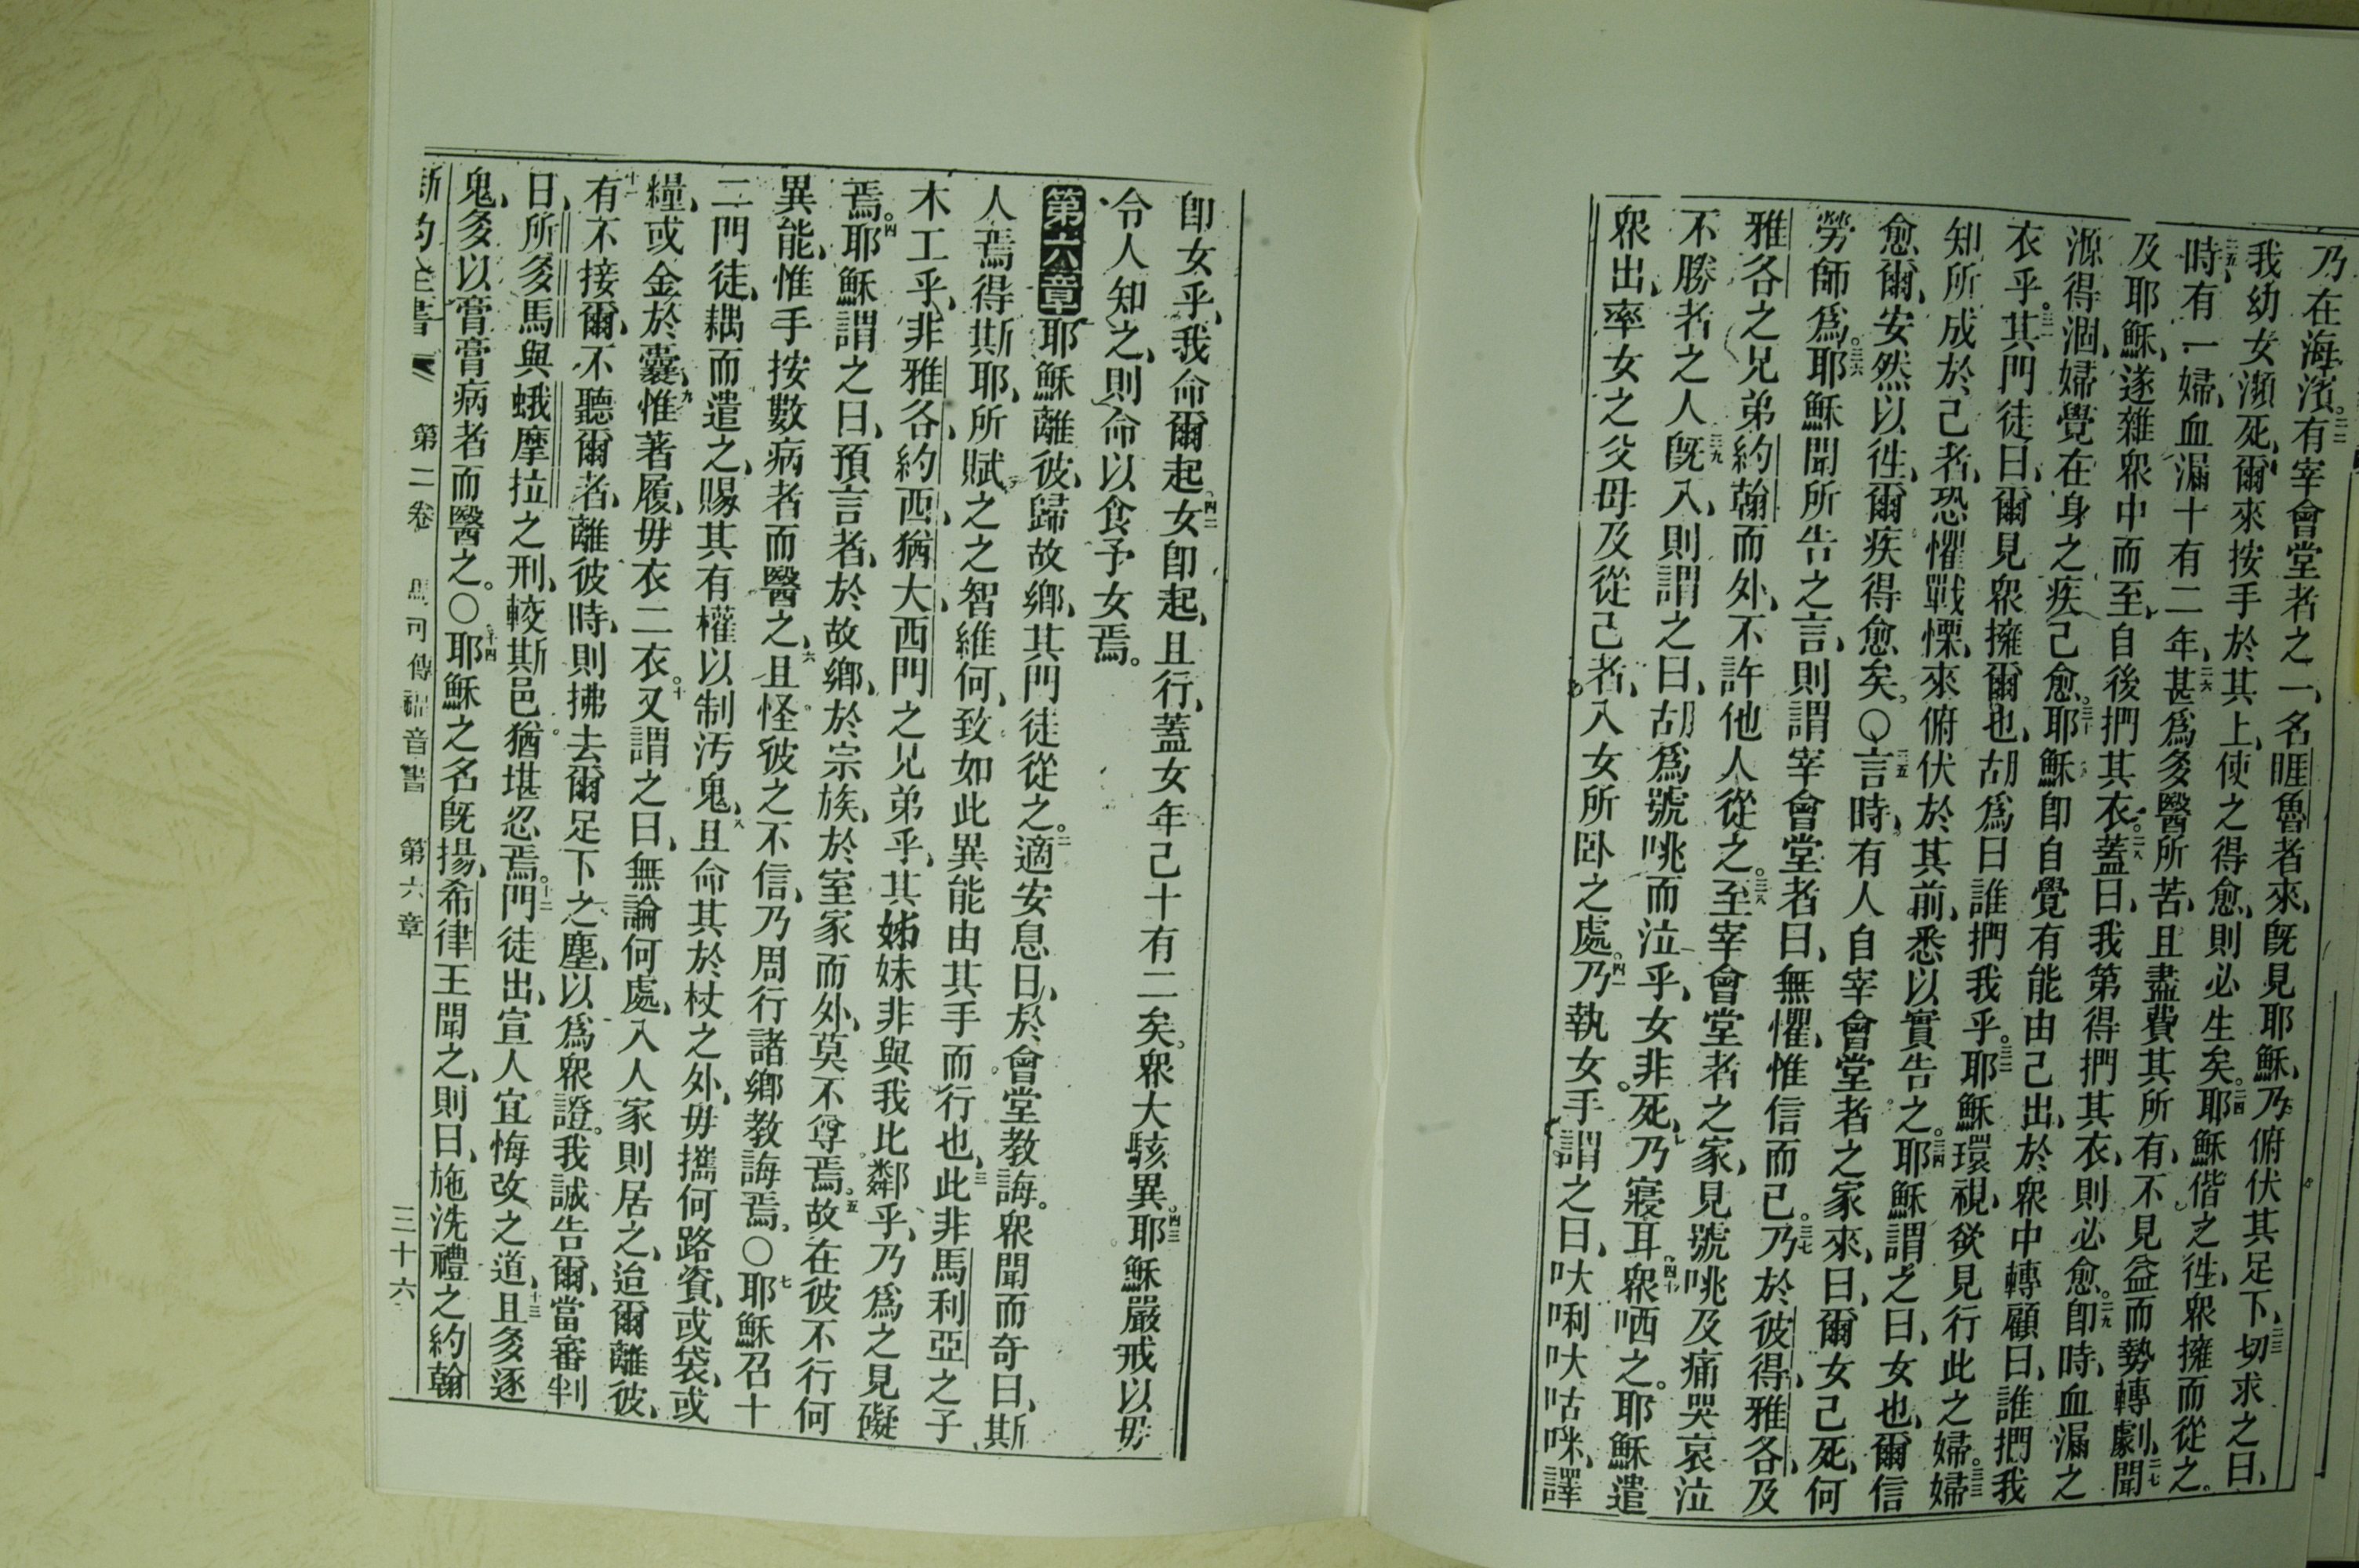 乃在海濱。二二有宰會堂者之一、名睚魯者來、旣見耶穌、乃俯伏其足下、二三切求之曰、
我幼女瀕死、爾來按手於其上、使之得愈、則必生矣。二四耶穌偕之徃、衆擁而從之。
二五時、有一婦、血漏十有二年、二六甚爲多醫所苦、且盡費其所有、不見益而勢轉劇、二七聞
及耶穌、遂雜衆中而至、自後捫其衣。二八蓋曰、我第得捫其衣、則必愈。二九卽時、血漏之
源得涸、婦覺在身之疾己愈。三十耶穌卽自覺有能由己出、於衆中轉顧曰、誰捫我
衣乎。三一其門徒曰、爾見衆擁爾也、胡爲曰誰捫我乎。三二耶穌環視、欲見行此之婦。三三婦
知所成於己者、恐懼戰慄、來俯伏於其前、悉以實告之。三四耶穌謂之曰、女也、爾信
愈爾、安然以徃、爾疾得愈矣。〇三五言時、有人自宰會堂者之家來、曰、爾女己死、何
勞師爲。三六耶穌聞所告之言、則謂宰會堂者曰、無懼、惟信而已。三七乃於彼得、雅各、及
雅各之兄弟約翰而外、不許他人從之。三八至宰會堂者之家、見號咷及痛哭哀泣
不勝者之人、三九旣入、則謂之曰、胡爲號咷而泣乎、女非死、乃寢耳。四十衆哂之。耶穌遣
衆出、率女之父母及從己者、入女所臥之處。四一乃執女手、謂之曰、吠唎吠咕咪、譯
卽女乎、我命爾起。四二女卽起、且行、蓋女年己十有二矣。衆大駭異。四三耶穌嚴戒以毋
令人知之、則命以食予女焉。
第六章耶穌離彼、歸故鄉、其門徒從之。二適安息日、於會堂教誨。衆聞而奇曰、斯
人焉得斯耶、所賦之之智維何、致如此異能由其手而行也、三此非馬利亞之子
木工乎、非雅各、約西、猶大、西門之兄弟乎、其姊妹非與我比鄰乎、乃爲之見礙
焉。四耶穌謂之曰、預言者、於故鄉、於宗族、於室家而外、莫不尊焉。五故在彼不行何
異能、惟手按數病者而醫之、六且怪彼之不信、乃周行諸鄉教誨焉。〇七耶穌召十
二門徒、耦而遣之、賜其有權以制汚鬼、八且命其於杖之外、毋攜何路資、或袋、或
糧、或金於囊、九惟著履、毋衣二衣。十又謂之曰、無論何處、入人家則居之、迨爾離彼、
十一有不接爾、不聽爾者、離彼時、則拂去爾足下之塵、以爲衆證。我誠告爾、當審判
日、所多馬與蛾摩拉之刑、較斯邑猶堪忍焉。十二門徒出、宣人宜悔改之道、十三且多逐
鬼、多以膏膏病者而醫之。〇十四耶穌之名旣揚、希律王聞之、則曰、施洗禮之約翰
新約全書 第二卷 馬可傳福音書 第六章 三十六